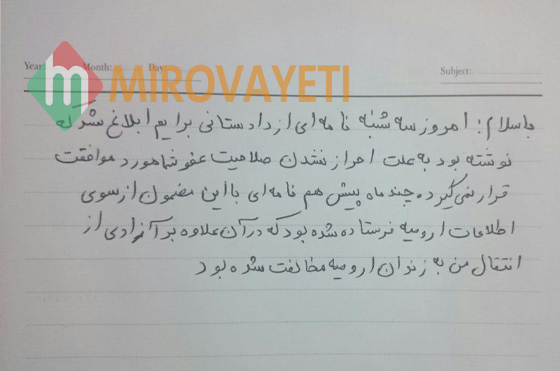 Year: Month: Day: Subject:
MIROVAYETI
باسلام؛ امروز سه شنبه نامه ای از دادستانی برایم ابلاغ شد که
نوشته بود به علت احراز نشدن صلاحیت عفو شما مورد موافقت
قرار نمی گیرد. چند ماه پیش هم نامه ای با این مضمون از سوی
اطلاعات ارومیه فرستاده شده بود که در آن علاوه بر آزادی از
انتقال من به زندان ارومیه مخالفت شده بود